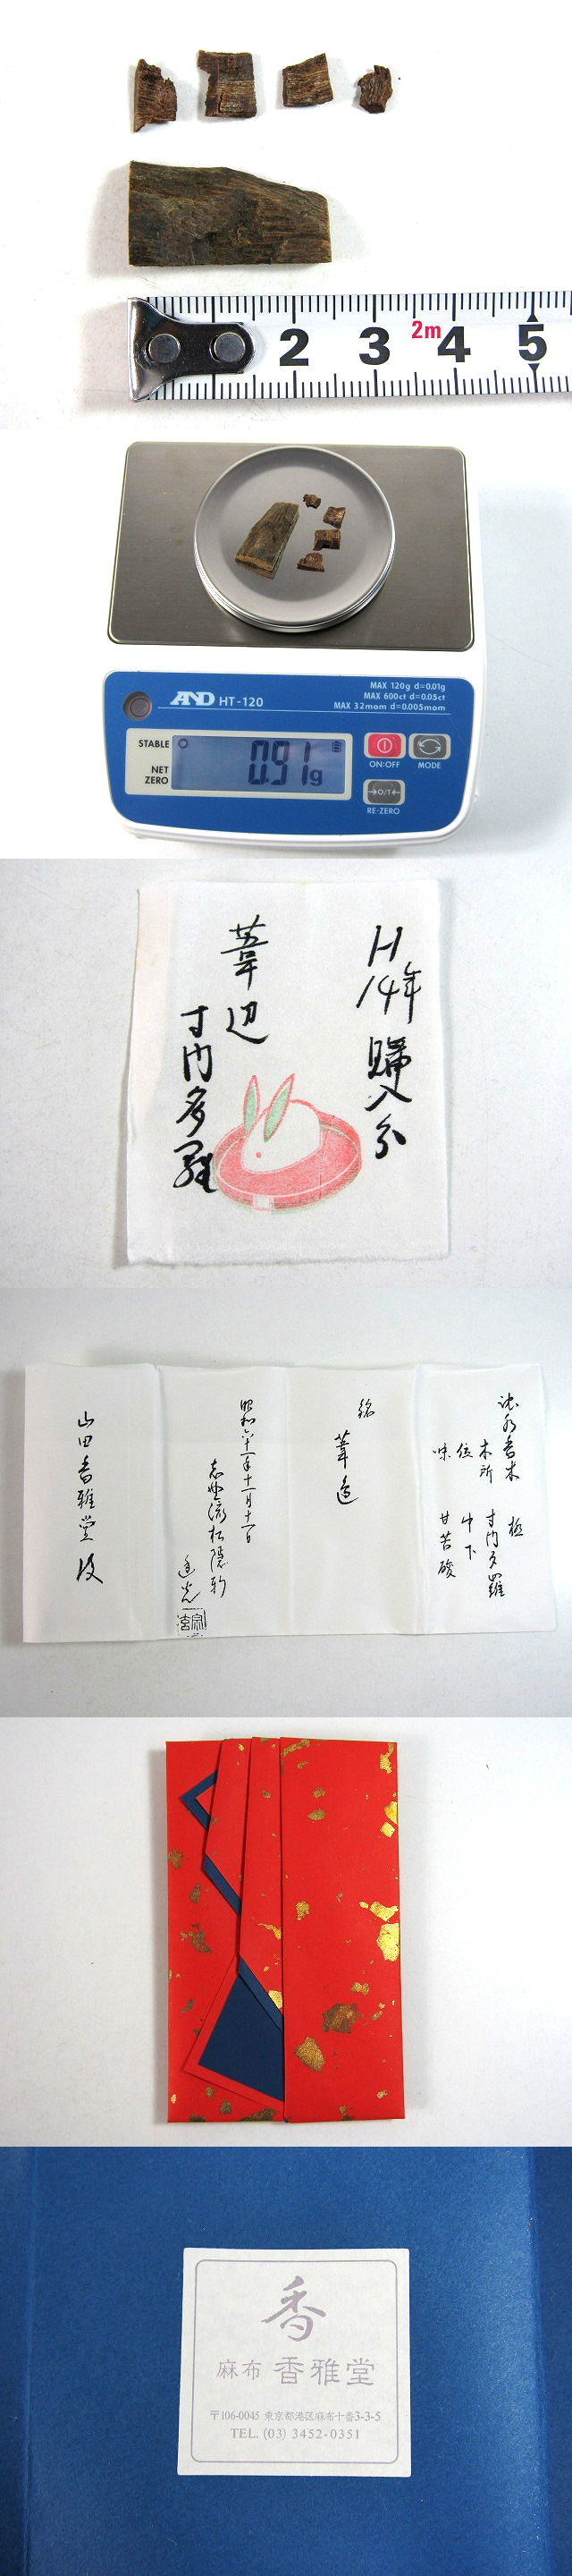 2 3 2m 4 5
AND HT-120
MAX 120g d=0.01g
MAX 600ct d=0.05ct
MAX 32mom d=0.005mom
STABLE
NET
ZERO
0.91g
ON:OFF
MODE
→O/T←
RE-ZERO
H
14年
購入分
葦辺
寸門多羅
沈水香木 極
木所 寸門多羅
位 中下
味 甘苦酸
銘
葦邊
昭和六十一年十一月十一日
志野流松隠軒
山田香雅堂殿
香
麻布 香雅堂
〒106-0045 東京都港区麻布十番3-3-5
TEL. (03) 3452-0351